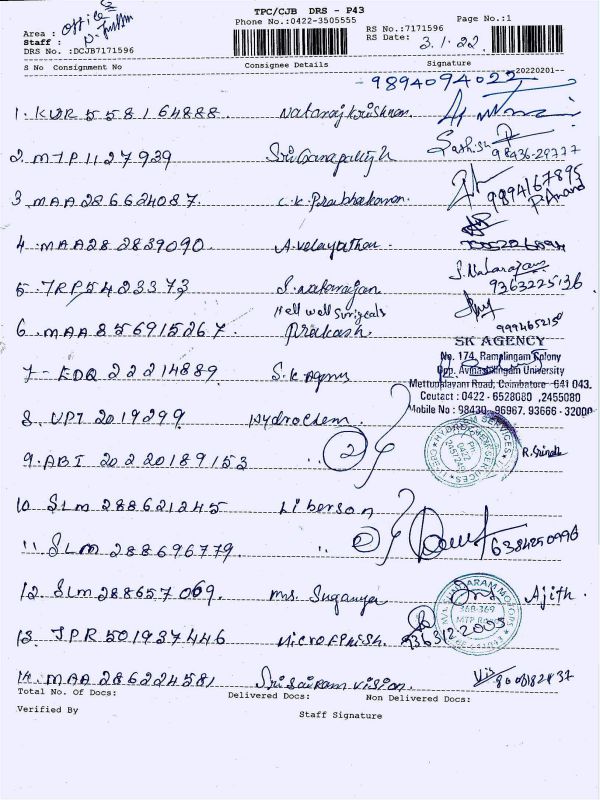 TPC/CJB DRS - P43
Phone No:0422-3505555
Page No.:1
Area : Office
Staff :
DRS No. :DCJB7171596
RS No.:7171596
RS Date: 3.1.22
S No Consignment No Consignee Details Signature
20220201--
9894094022
1. KUR 558164888 Natarajkrishnan
2. MTP1127939 Sathish 98436-29777
3 MAA286624087. C.K. Prabhakaran. 9894167895
P. Anand
4. MAA282839090. A. Velayathan
5. TRP5423373 S. Natarajan S. Natarajan 9363225136
Hell well Surgicals
6. MAA 856915267. Prakash 999465215
SK AGENCY
No. 174, Ramplingam Kolony
Opp. Avinashilingam University
7- EDQ 22214889. S.K Agnys
Mettupalayam Road, Coimbatore 641 043.
Coutact : 0422 - 6528080 ,2455080
Mobile No : 98430 - 96967. 93666 - 32000
8. UPT 2019299 Hydrochem
9. ABI 2022018 9153 " 2
10 SLM 288621245 Liberson
11. SLM 288696779. " 2 6384250996
12. SLM 288657069. Mrs. Suganya Ajith.
368-369
13. JPR 501937446 Microfinish. 936312.2005
14. MAA 286224581 Sri Sairam Vision.
Total No. Of Docs: Delivered Docs: Non Delivered Docs:
Verified By Staff Signature